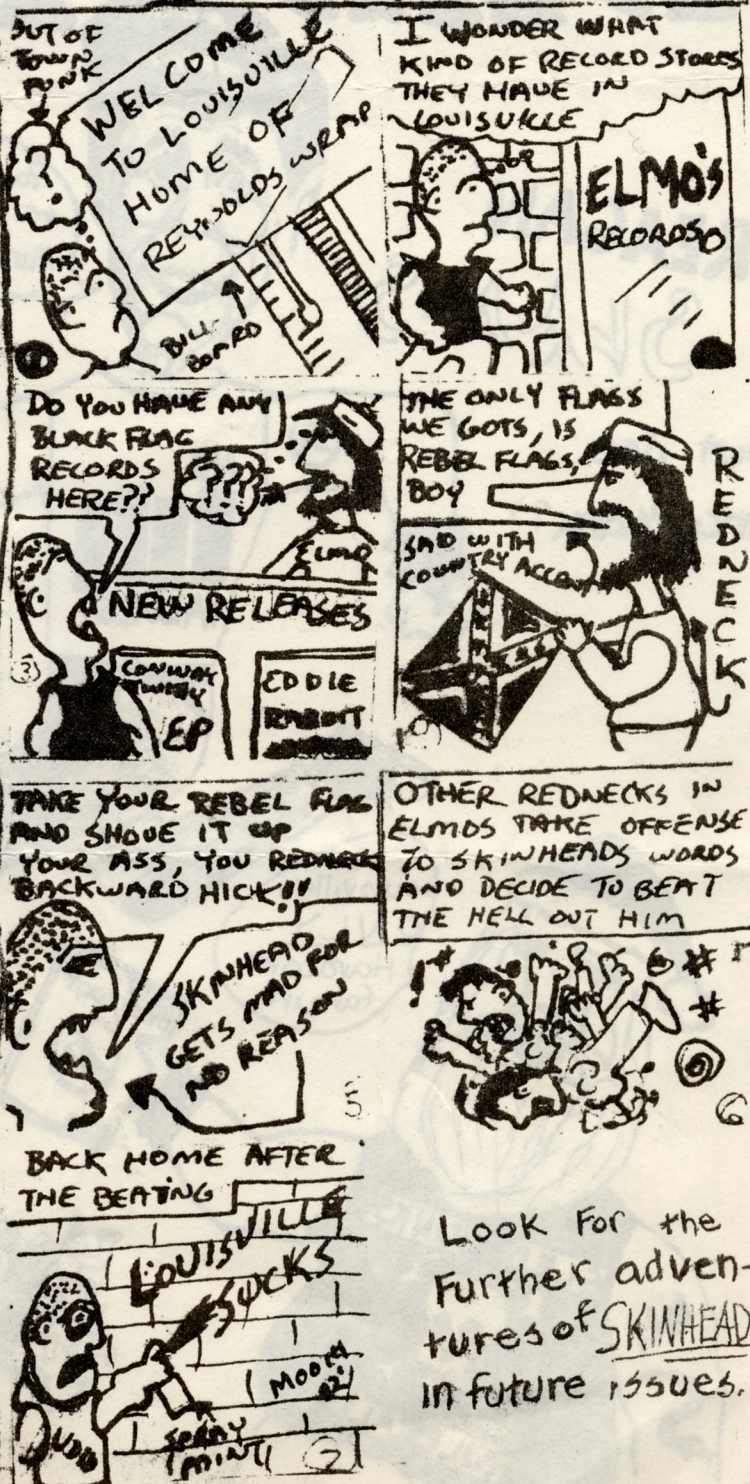 OUT OF
TOWN
PUNK
WELCOME
TO LOUISVILLE
HOME OF
REYNOLDS WRAP
BILL-
BOARD
I WONDER WHAT
KIND OF RECORD STORES
THEY HAVE IN
LOUISVILLE
ELMO'S
RECORDS
DO YOU HAVE ANY
BLACK FLAG
RECORDS
HERE??
???
ELMO
NEW RELEASES
CONWAY
TWITTY
EP
EDDIE
RABBIT
3
THE ONLY FLAGS
WE GOTS, IS
REBEL FLAGS,
BOY
SAID WITH
COUNTRY ACCENT
REDNECK
TAKE YOUR REBEL FLAG
AND SHOVE IT UP
YOUR ASS, YOU REDNECK
BACKWARD HICK!!
SKINHEAD
GETS MAD FOR
NO REASON
5
OTHER REDNECKS IN
ELMOS TAKE OFFENSE
TO SKINHEADS WORDS
AND DECIDE TO BEAT
THE HELL OUT HIM
6
BACK HOME AFTER
THE BEATING
LOUISVILLE
SUCKS
SPRAY
PAINT
7
Look For the
Further adven-
tures of SKINHEAD
in future issues.